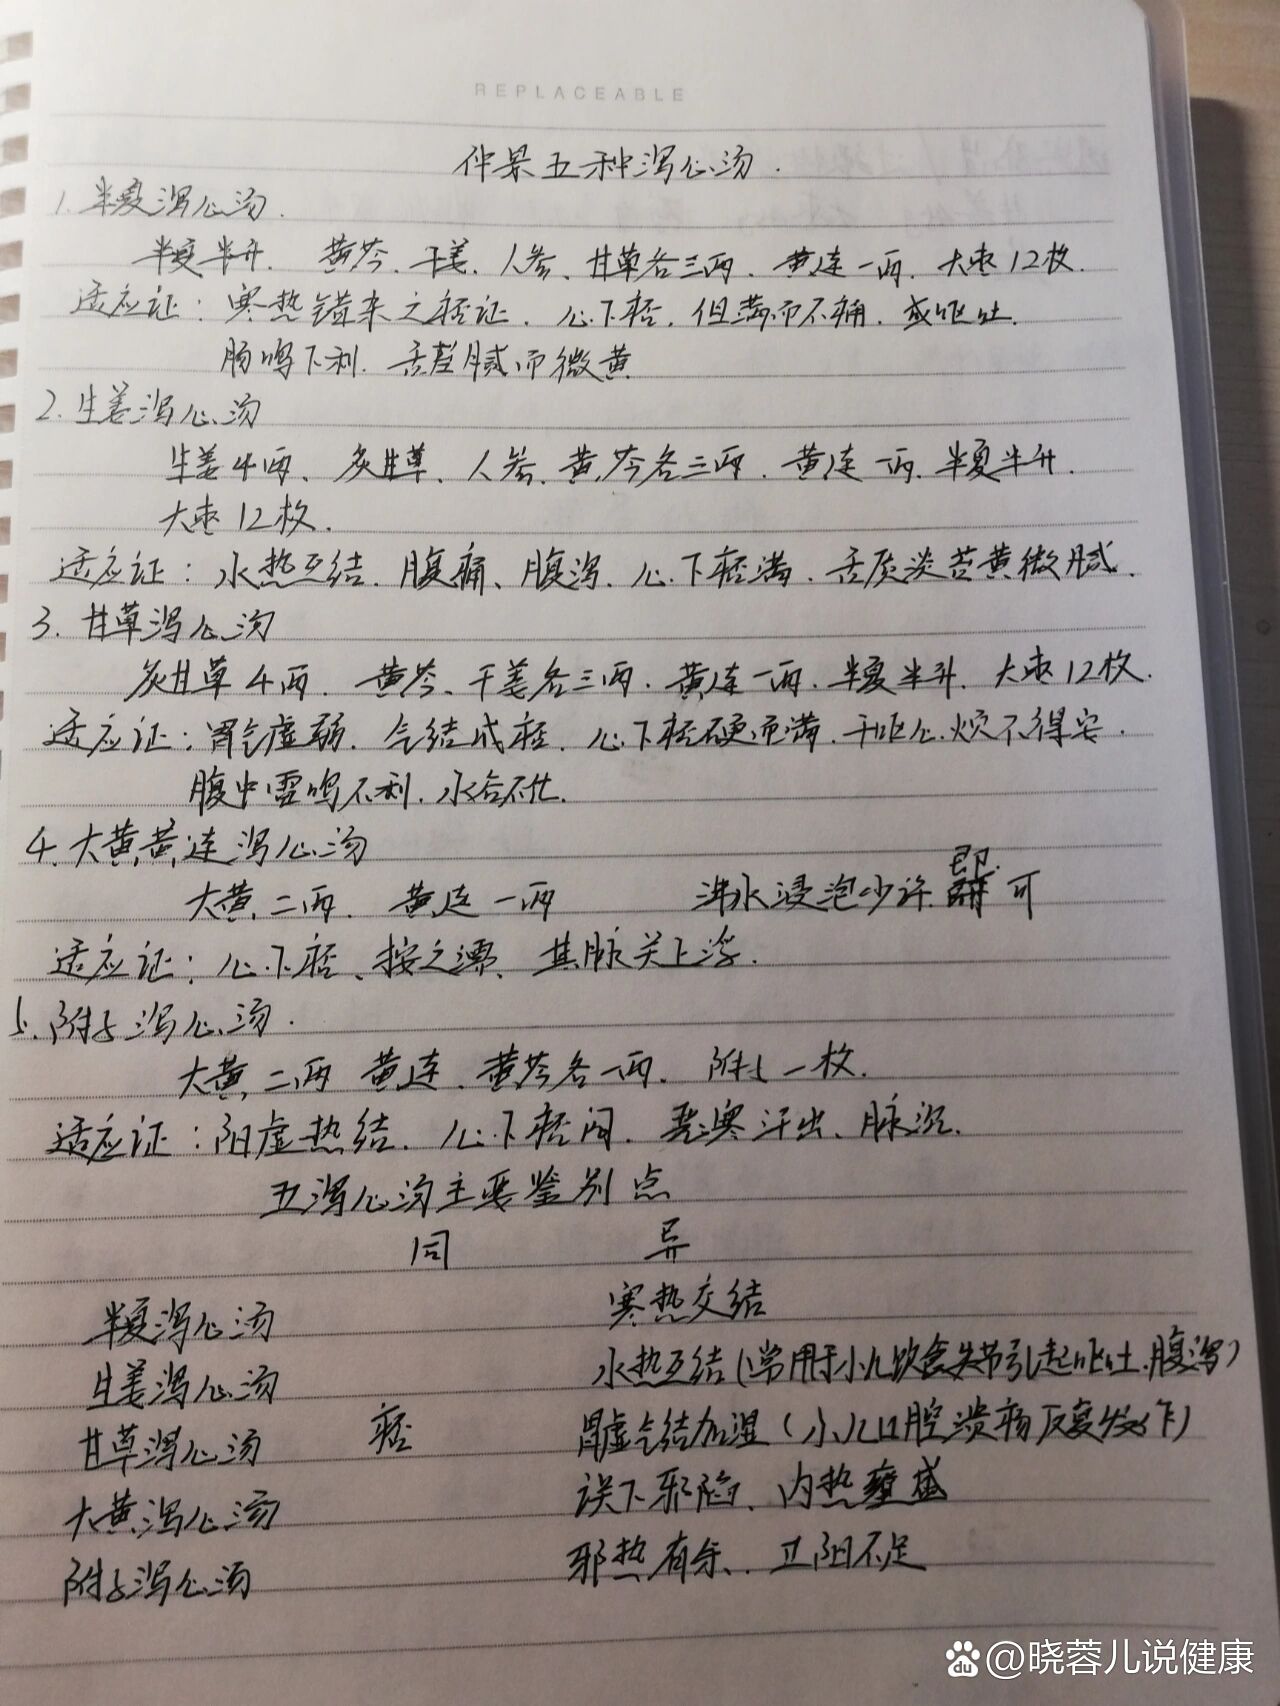 REPLACEABLE
仲景五种泻心汤.
1. 半夏泻心汤.
半夏半升. 黄芩、干姜、人参、甘草各三两. 黄连一两. 大枣12枚.
适应证: 寒热错杂之痞证. 心下痞. 但满而不痛. 或呕吐.
肠鸣下利. 舌苔腻而微黄
2. 生姜泻心汤
生姜4两、炙甘草、人参、黄芩各三两. 黄连一两. 半夏半升.
大枣12枚.
适应证: 水热互结. 腹痛、腹泻. 心下痞满. 舌质淡苔黄微腻.
3. 甘草泻心汤
炙甘草4两. 黄芩、干姜各三两. 黄连一两. 半夏半升. 大枣12枚.
适应证: 胃气虚弱. 气结成痞. 心下痞硬而满. 干呕心烦不得安.
腹中雷鸣下利. 水谷不化.
4. 大黄黄连泻心汤
大黄二两. 黄连一两 沸水浸泡少许即可
适应证: 心下痞、按之濡、其脉关上浮.
5. 附子泻心汤.
大黄二两 黄连、黄芩各一两. 附子一枚.
适应证: 阳虚热结. 心下痞闷. 恶寒汗出、脉沉.
五泻心汤主要鉴别点
同 异
半夏泻心汤 寒热交结
生姜泻心汤 水热互结(常用于小儿饮食失节引起呕吐.腹泻)
甘草泻心汤 痞 胃虚气结加湿(小儿口腔溃疡反复发作)
大黄泻心汤 误下邪陷、内热壅盛
附子泻心汤 邪热有余、卫阳不足
@晓蓉儿说健康